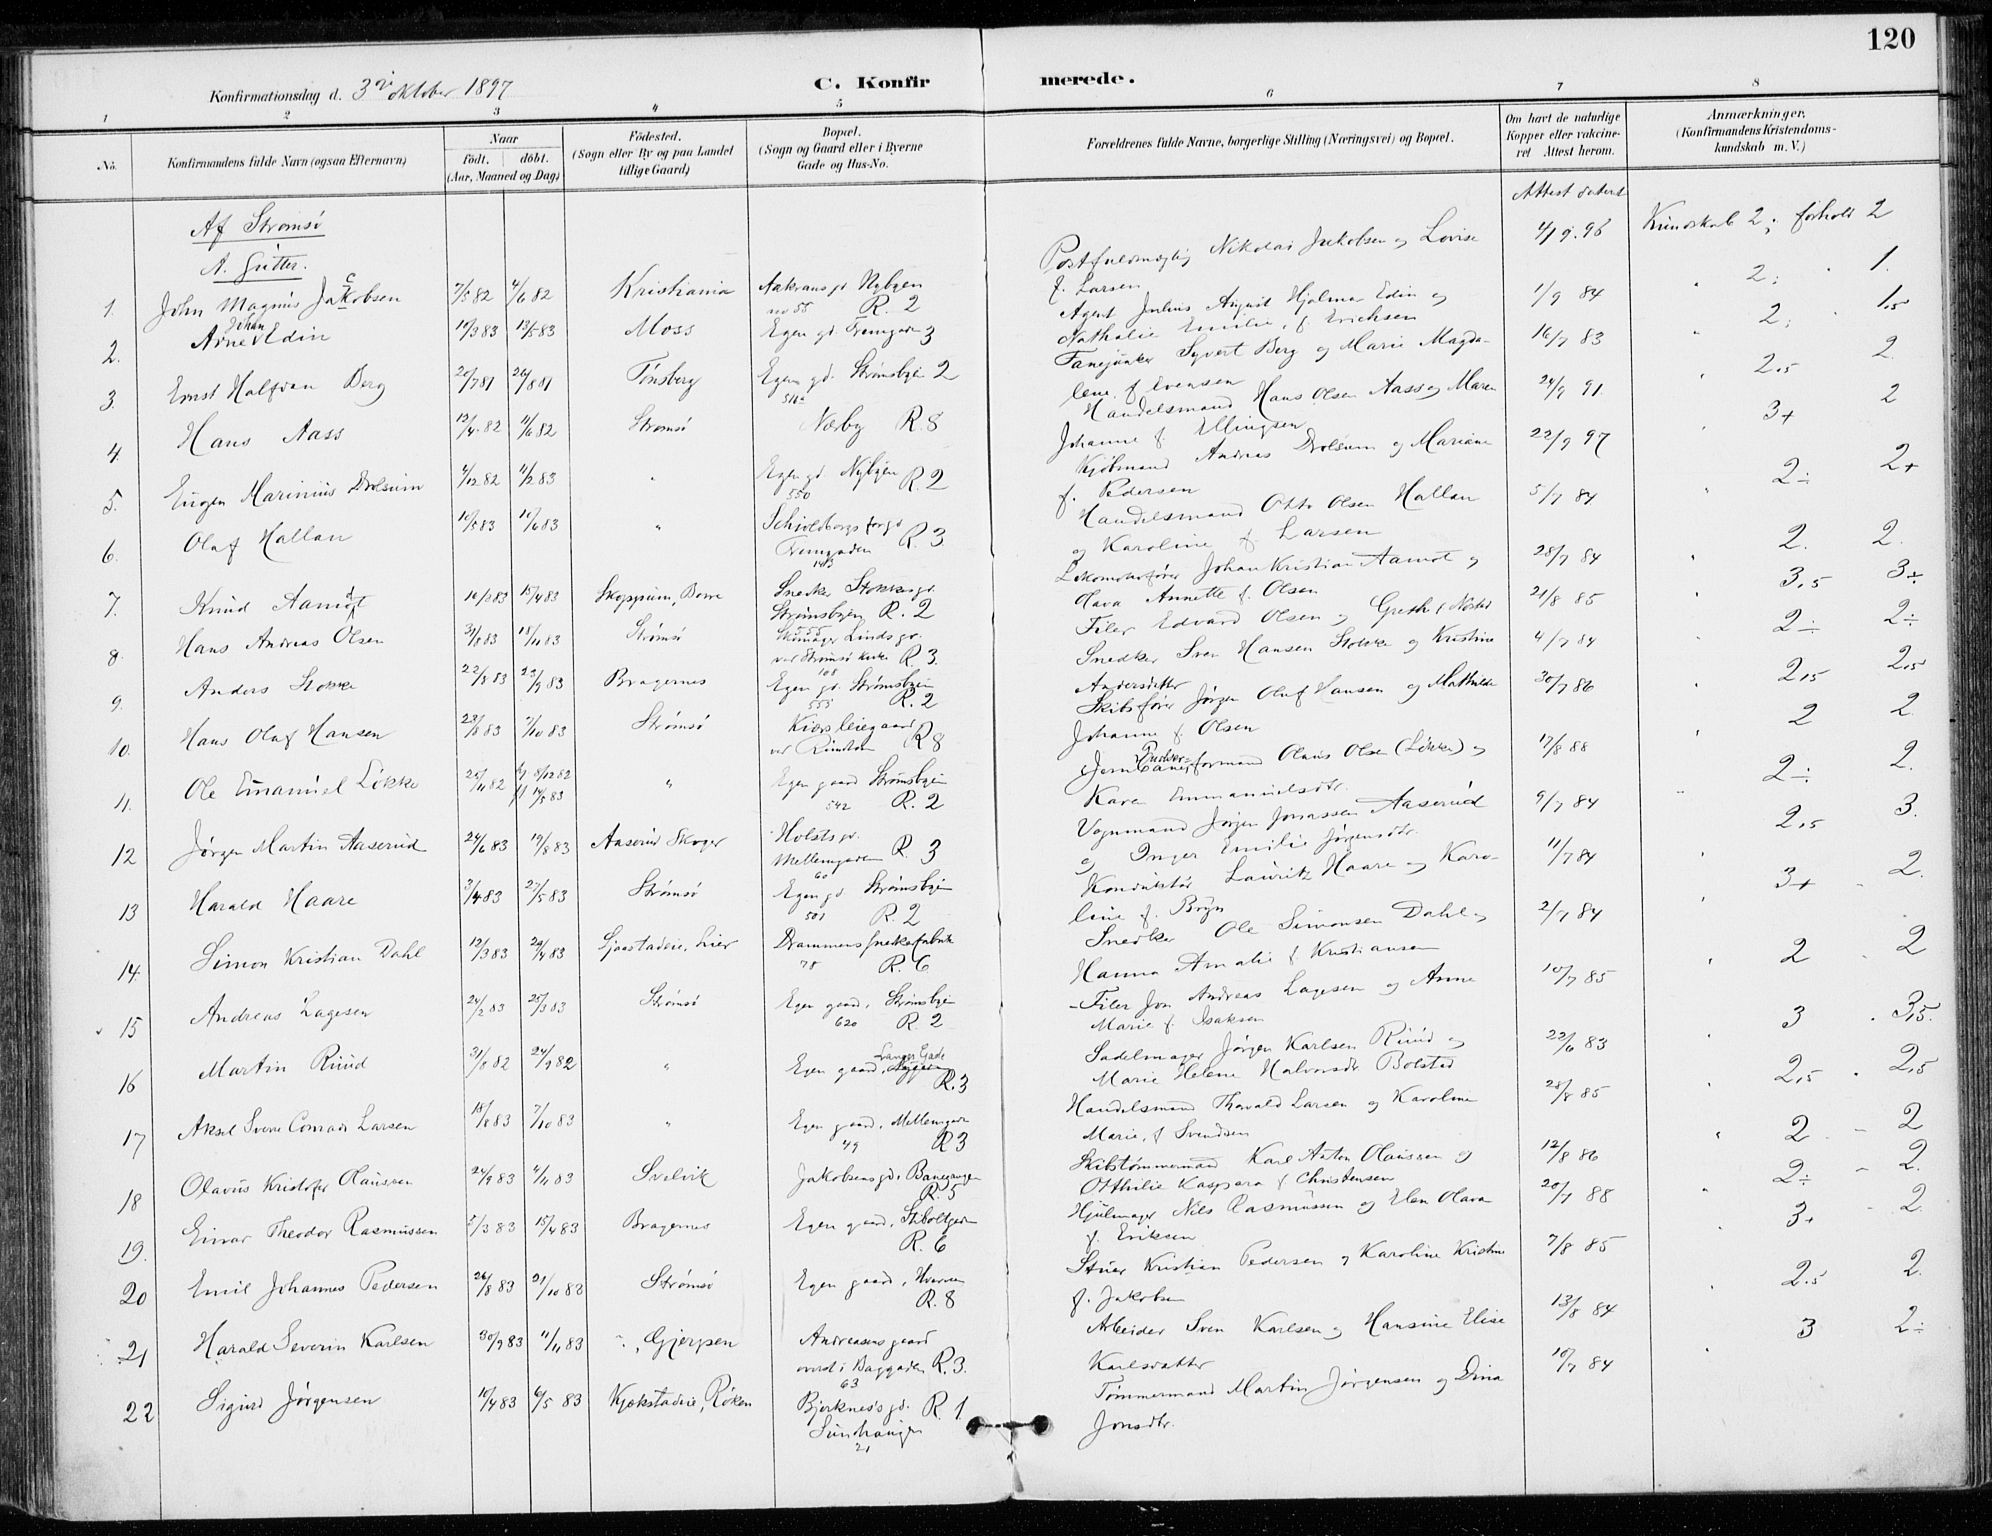 120
Konfirmationsdag d. 3die oktober 1897
C. Konfir merede.
1 2 3 4 5 6 7 8
No.
Konfirmandens fulde Navn (ogsaa Efternavn)
Naar
født. døbt.
(Aar, Maaned og Dag)
Fødested.
(Sogn eller By og paa Landet
tillige Gaard)
Bopæl.
(Sogn og Gaard eller i Byerne
Gade og Hus-No.
Forældrenes fulde Navne, borgerlige Stilling (Næringsvei) og Bopæl.
Om havt de naturlige
Kopper eller vakcine-
ret Attest herom.
Anmærkninger,
(Konfirmandens Kristendoms-
kundskab m. V.)
Attest datert
Af Strømsø
A. Gutter.
1. John Magnus Jakobsen 7/5 82 4/6 82 Kristiania Aakransgd Nybyen
no 55 R. 2
Postfuldmægtig Nikolai Jakobsen og Lovise
f. Larsen
4/9. 96 Kundskab 2; forhold 2
2. Arne Johan Edin 10/3 83 13/5 83 Moss Egen gd. Tremgaden 3
Agent Julius August Hjalmar Edin og
Nathalie Emilie, f. Erichsen
1/9 84 " 2; " 1.
3. Ernst Halfdan Berg 20/7 81 26/8 81 Tønsberg Egen gd. Strømsbyen 2
Fanejunker Syvert Berg og Marie Magda-
lene f. Evensen
16/7 83 " 2; 1,5
4. Hans Aass 12/4 82 11/6 82 Strømsø Nærby R 8
Handelsmand Hans Olsen Aass og Maren
Johanne f. Ellingsen
24/9 91. " 2,5 2
5. Eugen Marinius Drolsum 4/12 82 11/2 83 " Egen gd Nybyen R. 2
550
Kjøbmand Andreas Drolsum og Mariane
f. Pedersen
22/9 97 " 3+ 2
6. Olaf Hallan 10/5 83 10/6 83 " R. 3
Tremgaden
143
Handelsmand Otto Olsen Hallan
og Karoline f. Larsen
5/7 84 " 2÷ 2+
7. Knud Aamodt 10/3 83 15/4 83 Skoppum, Borre Snedker Stokkes gd.
Strømsbyen R. 2
555
Lokomotivfører Johan Kristian Aamot og
Olava Annette f. Olsen
28/7 84 " 2. 2.
8. Hans Andreas Olsen 31/8 83 18/11 83 Strømsø Skomager Lindsgd.
ved Strømsø kirke R. 3.
108
Filer Edvard Olsen og Grethe f. Nested
21/8 85 " 3,5 3÷
9. Anders Stokke 22/8 83 23/9 83 Bragernes Egen gd. Strømsbyen
555 R. 2
Snedker Sven Hansen Stokke og Kristine
Andersdatter
4/7 84 2÷ 2÷
10. Hans Olaf Hansen 28/8 83 7/10 83 Strømsø Kiærs leiegaard
ved Rundtom R 8
Skibsfører Jørgen Olaf Hansen og Mathilde
Johanne f. Olsen
30/7 86 " 2,5 2,5
11. Ole Emanuel Løkke 25/11 82 8/12 82
14/5 83 " Egen gaard Strømsbyen
542 R. 2
formand Olaus Olsen (Løkke) og
Karen Emmanuelsdtr.
17/8 88 " 2 2.
12 Jørgen Martin Aaserud 24/6 83 19/8 83 Aaserud Skoger Holstsgd.
Mellemgaden R. 3
60
Vognmand Jørgen Jonassen Aaserud
og Inger Emilie Jørgensdtr.
9/7 84 " 2÷ 2.
13 Harald Haare 3/4 83 27/5 83 Strømsø Egen gd Strømsbyen
501 R. 2
Konduktør Lauritz Haare og Karo-
line f. Bryn
11/7 84 " 2,5 3.
14. Simon Kristian Dahl 12/3 83 29/4 83 Gjaastadeie, Lier Drammens snekkefabrik
78 R. 6
Snedker Ole Simonsen Dahl og
Hanna Amalie f. Kristiansen
2/7 84 " 3+ - 2.
15 Andreas Lagesen 24/2 83 25/3 83 Strømsø Egen gaard, Strømsbyen
620 R. 2
Filer Jon Andreas Lagesen og Anne
Marie f. Isaksen
10/7 85 " 2 - 2
16 Martin Ruud 31/8 82 24/9 82 " Egen gaard, Langes Gade
R. 3
Sadelmager Jørgen Karlsen Ruud og
Marie Helene Halvorsdr. Bolstad
22/6 83 3 . 3,5.
17 Aksel Sverre Conrad Larsen 18/8 83 7/10 83 " Egen gaard, Mellemgaden
49 R 3
Handelsmand Thorvald Larsen og Karoline
Marie, f. Svendsen
28/8 85 " 2,5 . 2,5
18 Olavus Kristofer Olaussen 24/9 83 4/11 83 Svelvik Jakobsens gd. Bangangen
R. 5
Skibstømmermand Karl Anton Olaussen og
Otthilie Kaspara f. Christensen
12/8 86 " 2 - 2
19. Einar Theodor Rasmussen 5/3 83 15/4 83 Bragernes Egen gaard, Skoltgaden
R. 6
Hjulmager Nils Rasmussen og Elen Olava
f. Eriksen
20/7 88 " 2÷ - 2.
20 Emil Johannes Pedersen 26/8 83 21/10 83 Strømsø Egen gaard, Havnen
R. 8
Stuer Kristian Pedersen og Karoline Kristine
f. Jakobsen
7/8 85 " 3+ - 2
21 Harald Severin Karlsen 30/9 83 11/11 83 ", Gjerpen Andreasens gaard
øverst i Baggaden R. 3.
63
Arbeider Sven Karlsen og Hansine Elise
Karlsdatter
13/8 84 " 2.5 2.
22 Sigurd Jørgensen 10/4 83 6/5 83 Kjekstadeie, Røken Bjerknes's gd. R. 1
Sundhaugen
21
Tømmermand Martin Jørgensen og Dina
Jonsdtr.
10/7 84 " 3 2÷